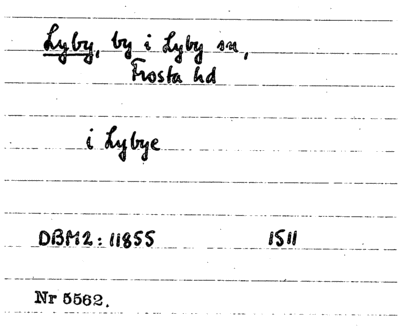 Lyby, by i Lyby sn,
Frosta hd
i Lybye
DBM2: 11855 1511
Nr 5562.